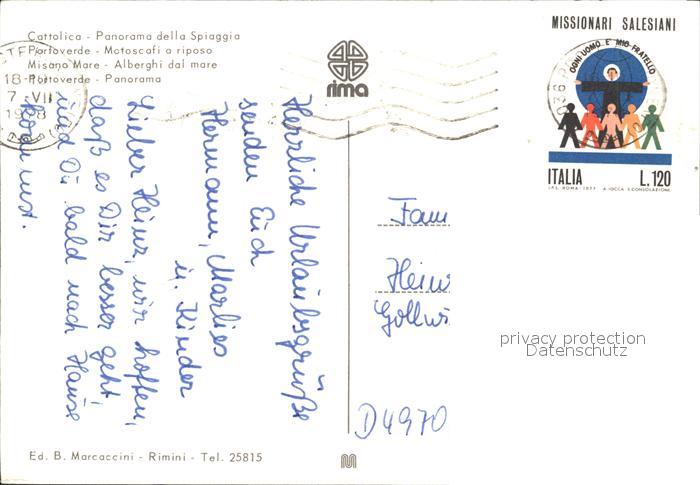 Cattolica - Panorama della Spiaggia
Portoverde - Motoscafi a riposo
Misano Mare - Alberghi dal mare
Portoverde - Panorama
rima
MISSIONARI SALESIANI
OGNI UOMO E' MIO FRATELLO
ITALIA L.120
I.P.S. ROMA - 1977
18-
7 -VII
Herrliche Urlaubsgrüße
senden Euch
Hermann, Marlies
u. Kinder
Lieber Heinz, wir hoffen,
daß es Dir besser geht,
und Du bald nach Hause
kommst.
Fam
Hein
Gollwi
D4970
privacy protection
Datenschutz
Ed. B. Marcaccini - Rimini - Tel. 25815